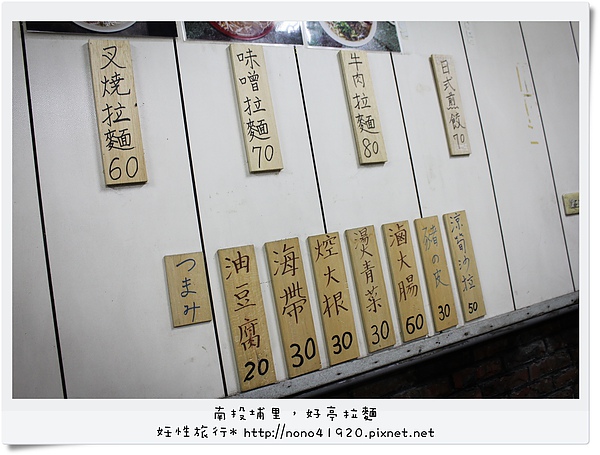 叉燒拉麵60
味噌拉麵70
牛肉拉麵80
日式煎餃70
つまみ
油豆腐20
海帶30
焢大根30
燙青菜30
滷大腸60
豬の皮30
涼筍沙拉50
南投埔里，好亭拉麵
妊性旅行* http://nono41920.pixnet.net